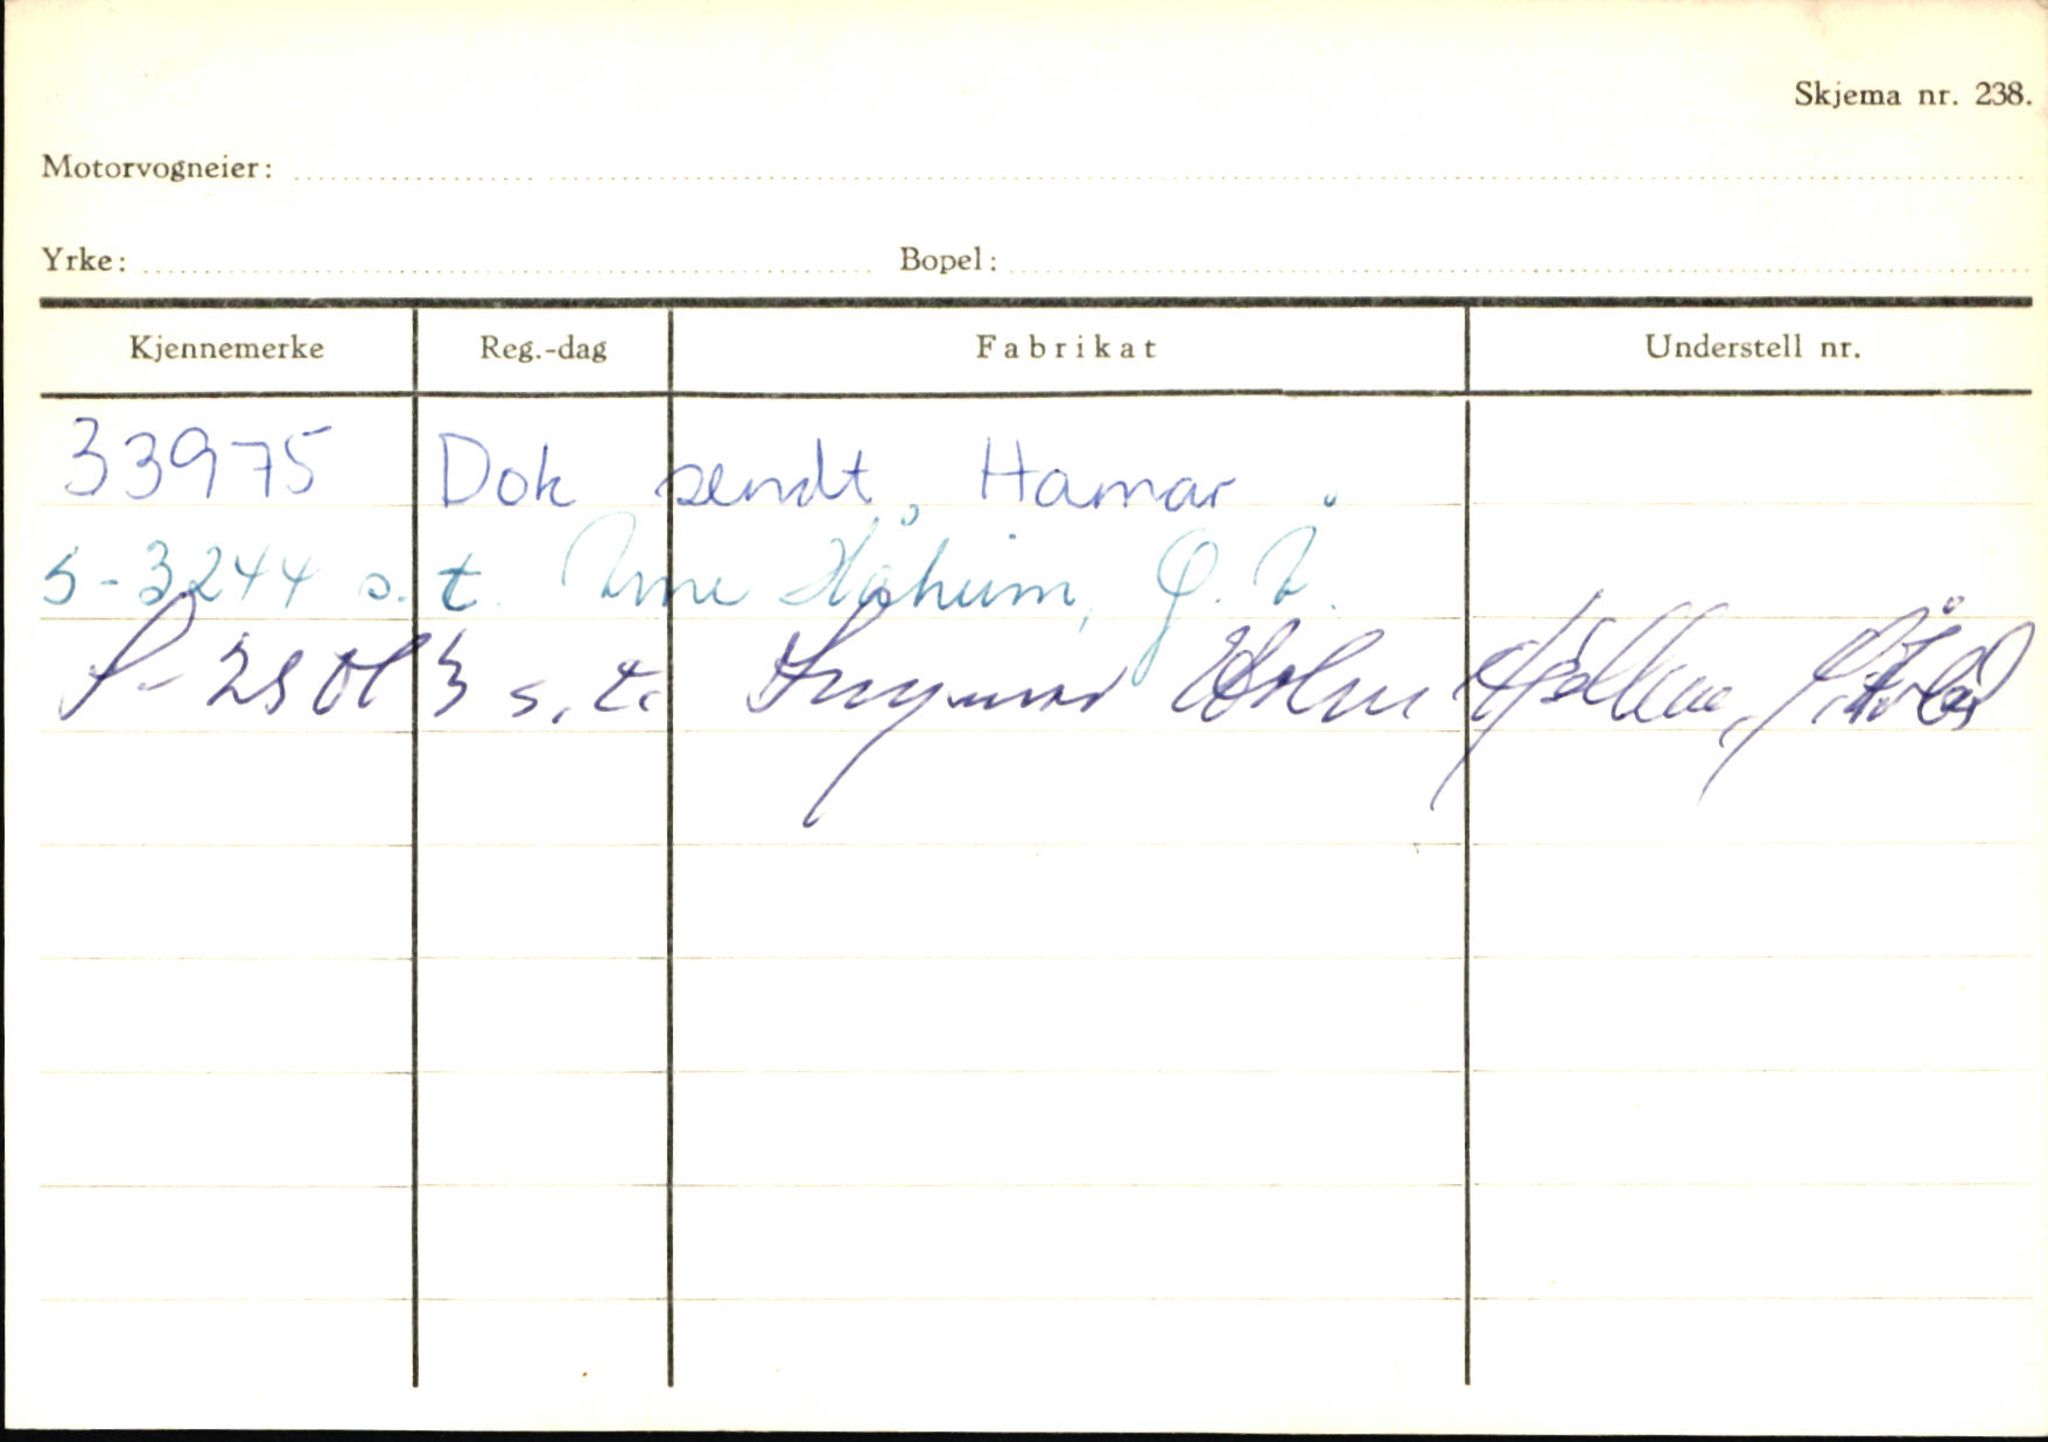 Skjema nr. 238.
Motorvogneier:
Yrke: Bopel:
Kjennemerke Reg.-dag Fabrikat Understell nr.
33975 Dok sendt, Hamar.
S-3244 s.t. Arne Håheim, Ø. Å.
S-28013 s.t. Ingmar Holm